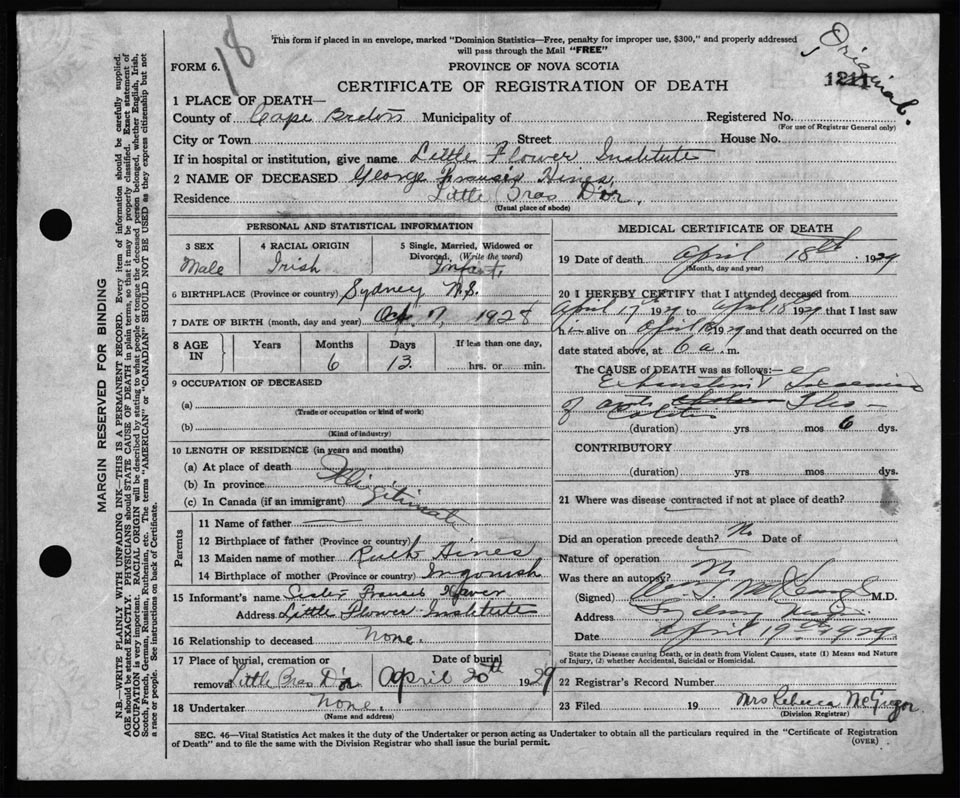 18
This form if placed in an envelope, marked "Dominion Statistics—Free, penalty for improper use, $300," and properly addressed
will pass through the Mail "FREE"
Original.
FORM 6.
PROVINCE OF NOVA SCOTIA
1211
CERTIFICATE OF REGISTRATION OF DEATH
1 PLACE OF DEATH—
County of Cape Breton Municipality of Registered No.
(For use of Registrar General only)
City or Town Street House No.
If in hospital or institution, give name Little Flower Institute
2 NAME OF DECEASED George Francis Hines,
Residence Little Bras D'or.
(Usual place of abode)
PERSONAL AND STATISTICAL INFORMATION
3 SEX
Male
4 RACIAL ORIGIN
Irish
5 Single, Married, Widowed or
Divorced, (Write the word)
Infant,
6 BIRTHPLACE (Province or country) Sydney N.S.
7 DATE OF BIRTH (month, day and year) 1928
8 AGE
IN
Years Months Days If less than one day,
6 13 hrs. or min.
9 OCCUPATION OF DECEASED
(a)
(Trade or occupation or kind of work)
(b)
(Kind of industry)
10 LENGTH OF RESIDENCE (in years and months)
(a) At place of death
(b) In province
(c) In Canada (if an immigrant)
Illigitimate
Parents
11 Name of father —
12 Birthplace of father (Province or country)
13 Maiden name of mother Ruth Hines
14 Birthplace of mother (Province or country) Ingonish
15 Informant's name Sister Francis Xavier
Address Little Flower Institute
16 Relationship to deceased None.
17 Place of burial, cremation or
removal Little Bras D'or
Date of burial
April 20th 1929
18 Undertaker None.
(Name and address)
MEDICAL CERTIFICATE OF DEATH
19 Date of death April 18th 1929
(Month, day and year)
20 I HEREBY CERTIFY that I attended deceased from
April 17th 1929 to April 18 1929 that I last saw
h alive on April 18 1929 and that death occurred on
date stated above, at 6 a. m.
The CAUSE OF DEATH was as follows:—
Exhaustion & Toxemia
of Ileo-
Colitis
(duration) yrs mos 6 dys.
CONTRIBUTORY
(duration) yrs mos dys.
21 Where was disease contracted if not at place of death?
Did an operation precede death? No Date of
Nature of operation
Was there an autopsy? No
(Signed) M.D.
Address Sydney
Date April 19th 1929
State the Disease causing Death, or in death from Violent Causes, state (1) Means and Nature
of Injury, (2) whether Accidental, Suicidal or Homicidal.
22 Registrar's Record Number
23 Filed 19 Mrs Rebecca McGregor
(Division Registrar)
SEC. 46—Vital Statistics Act makes it the duty of the Undertaker or person acting as Undertaker to obtain all the particulars required in the "Certificate of Registration
of Death" and to file the same with the Division Registrar who shall issue the burial permit.
(OVER)
MARGIN RESERVED FOR BINDING
N.B.—WRITE PLAINLY WITH UNFADING INK—THIS IS A PERMANENT RECORD. Every item of information should be carefully supplied.
AGE should be stated EXACTLY. PHYSICIANS should STATE CAUSE OF DEATH in plain terms, so that it may be properly classified. Exact statement of
OCCUPATION is very important. RACIAL ORIGIN will be described by stating to what people or tongue the deceased person belonged, whether English, Irish,
Scotch, French, German, Russian, Ruthenian, etc. The terms "AMERICAN" or "CANADIAN" SHOULD NOT BE USED as they express citizenship but not
a race or people. See instructions on back of Certificate.